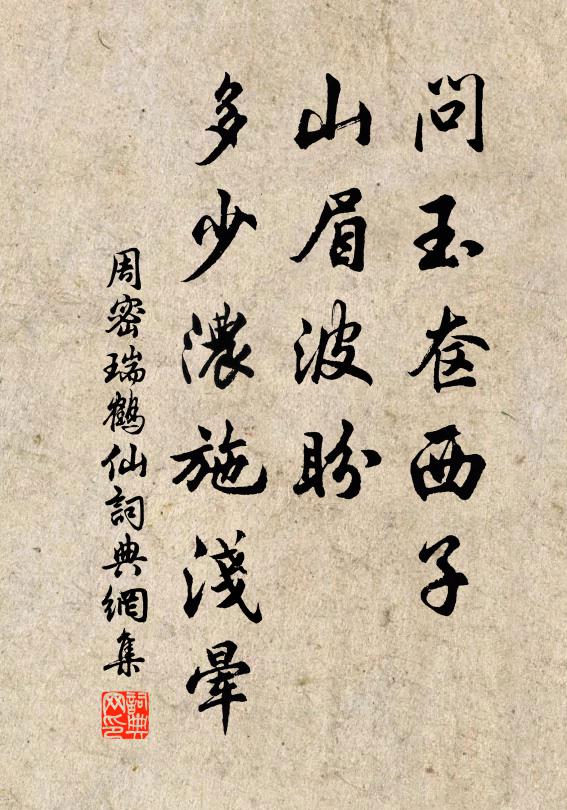 問玉奁西子
山眉波盼
多少濃施淺暈
周密瑞鶴仙詞典網集
詞典网印